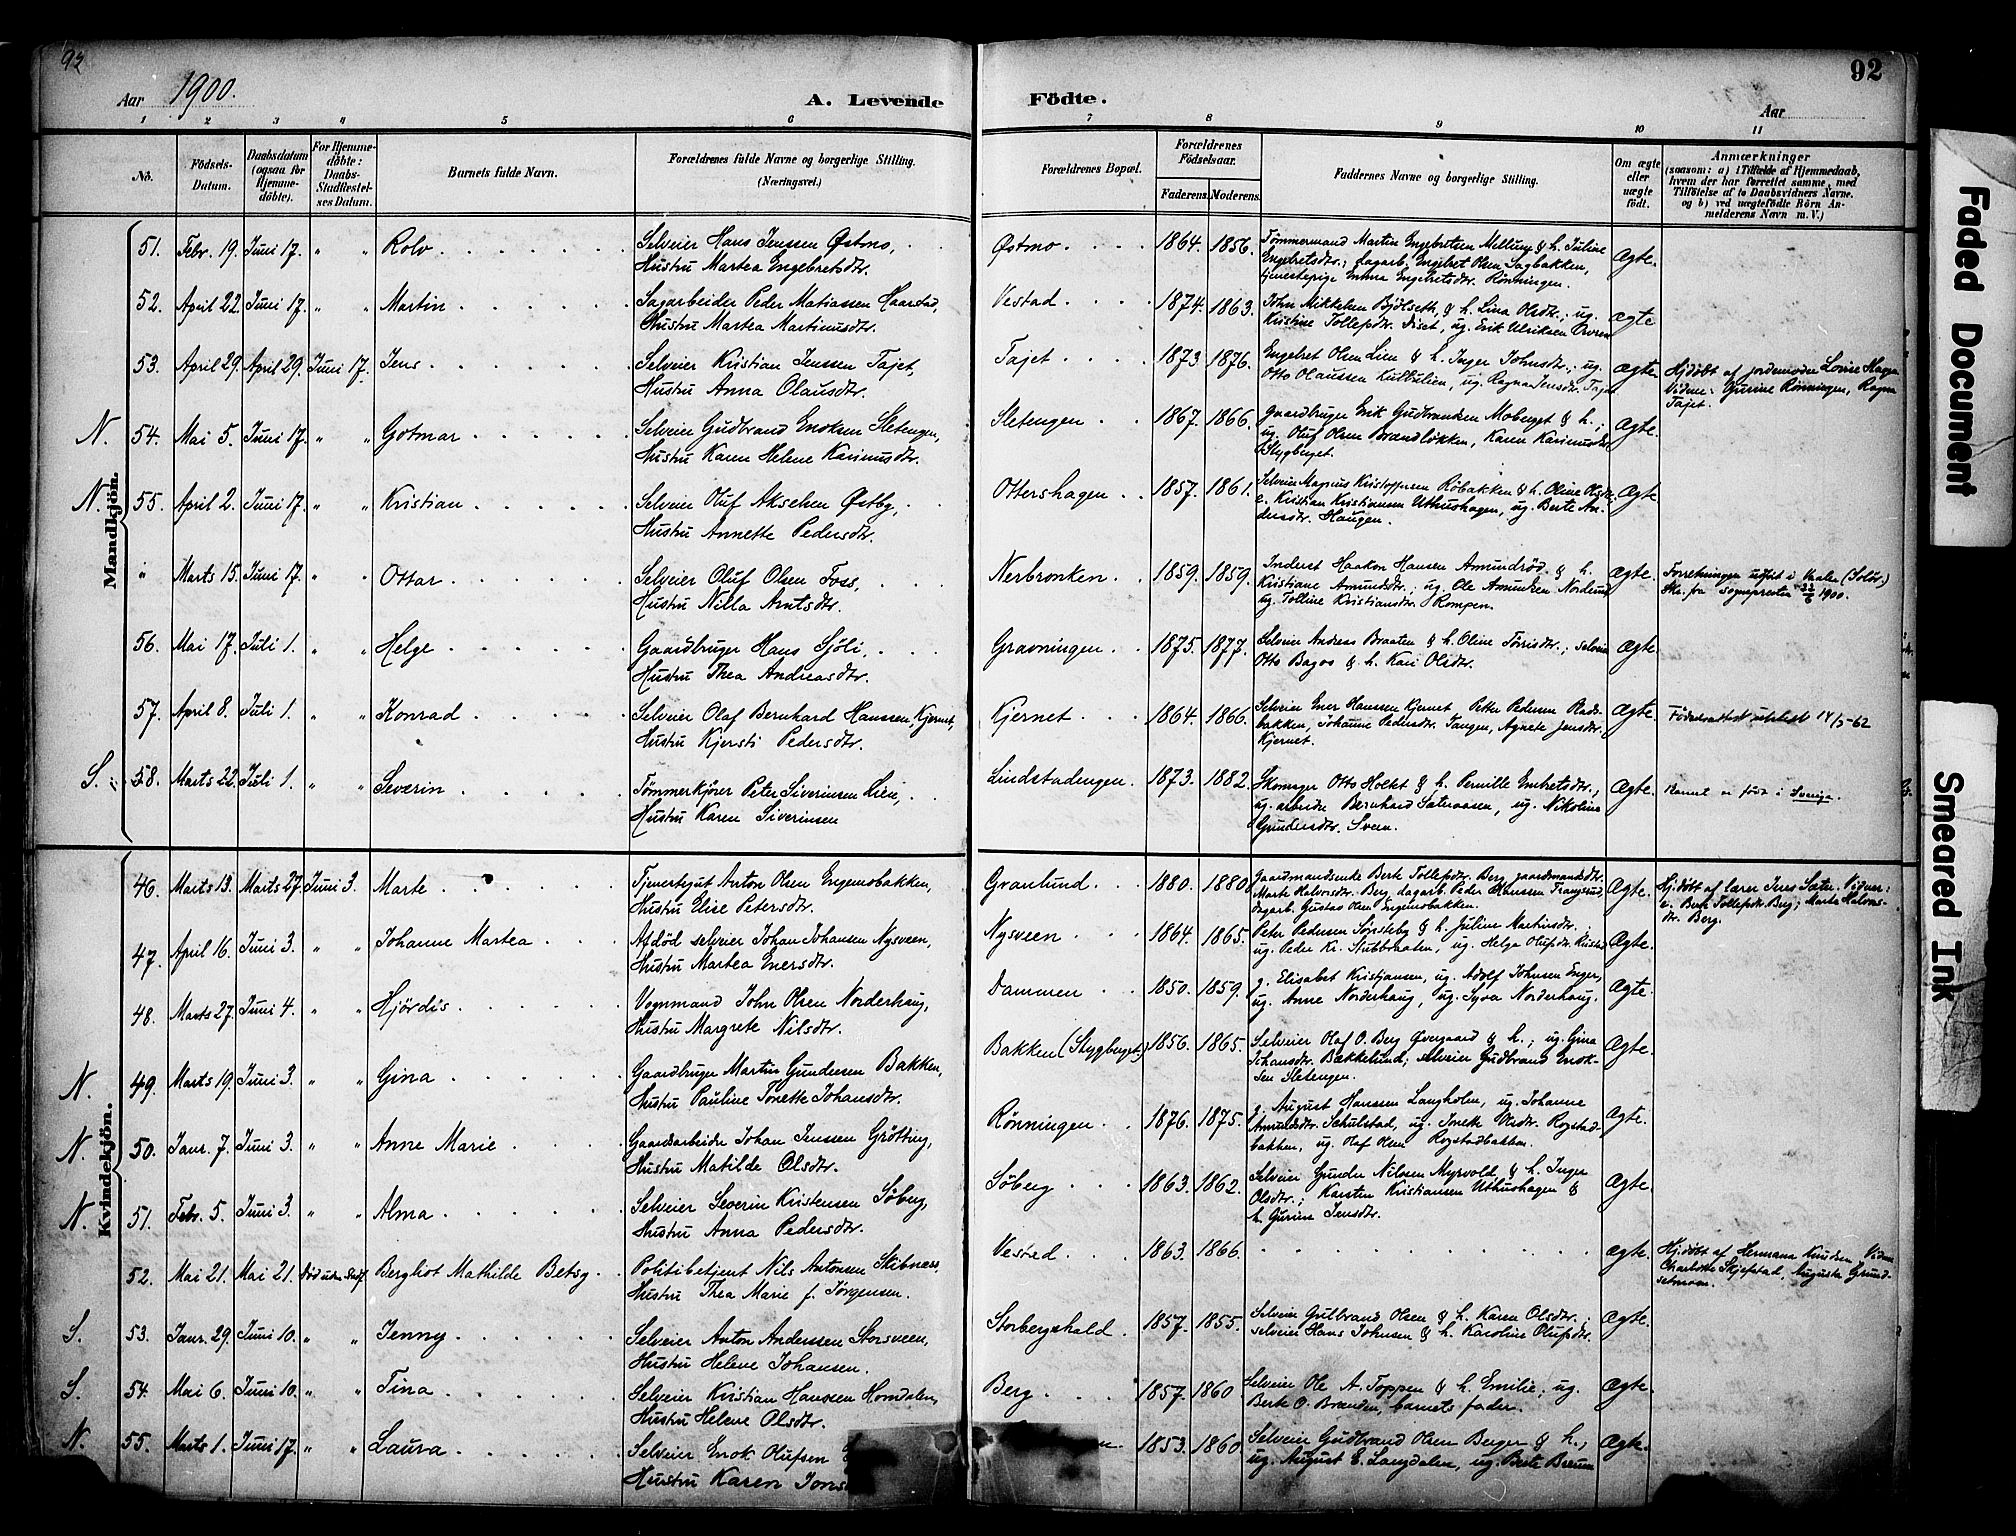 92
Aar 1900.
A. Levende
1 2 3 4 5 6
Nô.
Fôdsels-Datum.
Daabsdatum (ogsaa for Hjemme-dôbte).
For Hjemme-dôbte: Daabs-Stadfæstel-ses Datum.
Barnets fulde Navn.
Forældrenes fulde Navne og borgerlige Stilling.
(Næringsvei.)
92
Fôdte.
Aar
7 8 9 10 11
Forældrenes Bopæl.
Forældrenes Fôdselsaar.
Faderens. Moderens.
Faddernes Navne og borgerlige Stilling.
Om ægte eller uægte fôdt.
Anmærkninger
(saasom: a) i Tilfælde af Hjemmedaab, hvem der har forrettet samme, med Tilfôielse af to Daabsvidners Navne, og b) ved uægtefôdte Bôrn An-melderens Navn m. V.)
Mandkjôn.
51. Febr. 19. Juni 17. " " Rolv Selveier Hans Jenssen Østmo,
Hustru Martea Engebretsdtr.
Østmo. 1864. 1856. Tømmermand Martin Engebretsen Mellum & h. Juline
Engebretsdtr.; dagarb. Engebret Olsen Sagbakken,
tjenestepige Emma Engebretsdtr. Rönningen. Ægte.
52. April 22. Juni 17. " " Martin Sagarbeider Peder Matiassen Haarstad,
Hustru Martea Martinusdtr.
Vestad 1874. 1863. John Mikkelsen Bjölseth, & h. Lina Olsdtr.; ug.
Kristine Tollefsdtr. Diset, ug. Erik Ulriksen Ægte
53. April 29. April 29. Juni 17. Jens Selveier Kristian Jenssen Tajet,
Hustru Anna Olausdtr.
Tajet 1873 1876. Engebret Olsen Lien & h. Inger Johnsdtr.; ug.
Otto Olaussen Kulbulien, ug. Ragna Jensdtr. Tajet ægte. Hj.döbt af jordemoder Lovise Hagen
Vidner: Gurine Rönningen, Ragna
Tajet.
N. 54. Mai 5. Juni 17. " " Gotmar Selveier Gudbrand Enoksen Sletengen,
Hustru Karen Helene Karinusdtr.
Sletengen 1867. 1866. Gaardbruger Erik Gudbrandsen Moberget & h.;
ug. Oluf Olsen Brændlökken, Karen Karinusdtr.
Stygberget. Ægte.
N. 55. April 2. Juni 17. " " Kristian Selveier Oluf Akselsen Østby,
Hustru Annette Pedersdtr.
Ottershagen 1857. 1861. Selveier Magnus Kristoffersen Röbakken & h. Oline Olsdtr.
e. Kristian Kristiansen Uthushagen, ug. Berte An-
dersdtr. Haugen. Ægte
" Marts 15. Juni 17. " " Ottar Selveier Oluf Olsen Foss,
Hustru Nilla Arntsdtr.
Nerbronken. 1859. 1859. Inderst Haakon Hansen Amundröd. & h.
Kristiane Amundsdtr.; ug. Ole Amundsen Nordlund,
ug. Tolline Kristiansdtr. Rompen. Ægte. Forretningen udfört i Vaaler (Solör.)
Skr. fra sognepresten 1900.
56. Mai 17. Juli 1. " " Helge Gaardbruger Hans Sjöli,
Hustru Thea Andreasdtr.
Gravningen. 1875. 1877. Selveier Andreas Braaten & h. Oline Torrisdtr.; selveier
Otto Bagos & h. Kari Olsdtr. Ægte.
57. April 8. Juli 1. " " Konrad Selveier Olaf Bernhard Hanssen Kjernet,
Hustru Kjersti Pedersdtr.
Kjernet 1864. 1866. Selveier Ener Hanssen Kjernet Petter Pedersen Rads-
bakken, Johanne Pedersdtr. Tangen, Agnete Jensdtr.
Kjernet. Ægte. Födselsattest utstedt 14/5-62
S. 58. Marts 22. Juli 1. " " Severin Tømmerkjörer Peter Siverinsen Lien,
Hustru Karen Siverinsen
Lindstadengen. 1873. 1882. Skomager Otto Holtet & h. Pernille Embretsdtr.;
ug. arbeider Bernhard Sæteraasen, ug. Nikoline
Gundersdtr. Sveen. Ægte. Barnet er född i Sverige.
Kvindekjôn.
46. Marts 13. Marts 27. Juni 3. Marte Tjenestegut Anton Olsen Engemobakken,
Hustru Elise Petersdtr.
Granlund 1880. 1880. Gaardmandsenke Berte Tollefsdtr. Berg, gaardmandsdtr.
Marte Halvorsdtr. Berg, dagarb. Peder Hanssen Frangsund,
dagarb. Gustav Olsen Engemobakken. Ægte. Hj.döbt af lærer Jens Sæter. Vidner:
e. Berte Tollefsdtr. Berg; Marte Halvors-
dtr. Berg.
47. April 16. Juni 3. " " Johanne Martea Afdöd selveier Johan Johansen Nysveen,
Hustru Martea Enersdtr.
Nysveen 1864. 1865. Peter Pedersen Sörsteby & h. Juline Martinsdtr.;
ug. Peder K. Stubbraaten, ug. Helga Olufsdtr. Ægte.
48. Marts 27. Juni 4. " " Hjördis Vognmand John Olsen Norderhaug,
Hustru Margrete Nilsdtr.
Dammen 1850. 1859. g. Elisabet Kristjansen, ug. Adolf Johnsen Enger,
ug. Anne Norderhaug, ug. Syva Norderhaug. Ægte.
N. 49. Marts 19. Juni 3. " " Gina Gaardbruger Martin Gundersen Bakken,
Hustru Pauline Tonette Johansdtr.
Bakken (Stygberget.) 1856. 1865. Selveier Olaf O. Berg Øvergaard & h.; ug. Gina
Johansdtr. Bækkelund; selveier Gudbrand Enok-
sen Sletengen. Ægte.
N. 50. Janr. 7. Juni 3. " " Anne Marie Gaardsarbeider Johan Jenssen Grötting,
Hustru Matilde Olsdtr.
Rönningen 1876. 1875. g. August Hanssen Langholen, ug. Johanne
Amundsdtr. Schulstad, ug. Olsdtr. Rogstad-
bakken, ug. Olaf Olsen Rogstadbakken. Ægte.
N. 51. Febr. 5. Juni 3. " " Alma Selveier Severin Kristensen Söberg,
Hustru Anna Pedersdtr.
Söberg 1863. 1862. Selveier Gunder Nilssen Myrvold, & h. Inger
Olsdtr.; Karsten Kristiansen Uthushagen &
h. Gurine Jensdtr. Ægte.
52. Mai 21. Mai 21. Död uden stadf. Bergliot Mathilde Betsy Politibetjent Nils Antonsen Skibnæs,
Hustru Thea Marie f. Jörgensen.
Vestad 1863. 1866. Ægte. Hj.döbt af Hermana Knudsen Vidner
Charlotte Skjefstad, Augusta Grund-
setmoen.
S. 53. Janr. 29. Juni 10. " " Jenny Selveier Anton Anderssen Storsveen,
Hustru Helene Johansen.
Storbergshald. 1857. 1855. Selveier Gulbrand Olsen & h. Karen Olsdtr.;
selveier Hans Johnsen & h. Karoline Olufsdtr. Ægte.
S. 54. Mai 6. Juni 10. " " Tina Selveier Kristian Hanssen Homdalen,
Hustru Helene Olsdtr.
Berg 1857. 1860. Selveier Ole A. Toppen & h. Emilie; ug.
Berte O. Brænden, barnets fader. Ægte.
N. 55. Marts 1. Juni 17. " " Laura Selveier Enok Olufsen
Hustru Karen
1853. 1860. Selveier Gudbrand Olsen Berger & h.,
ug. August E. Langdalen, ug. Berte Ægte.
Faded Document
Smeared Ink